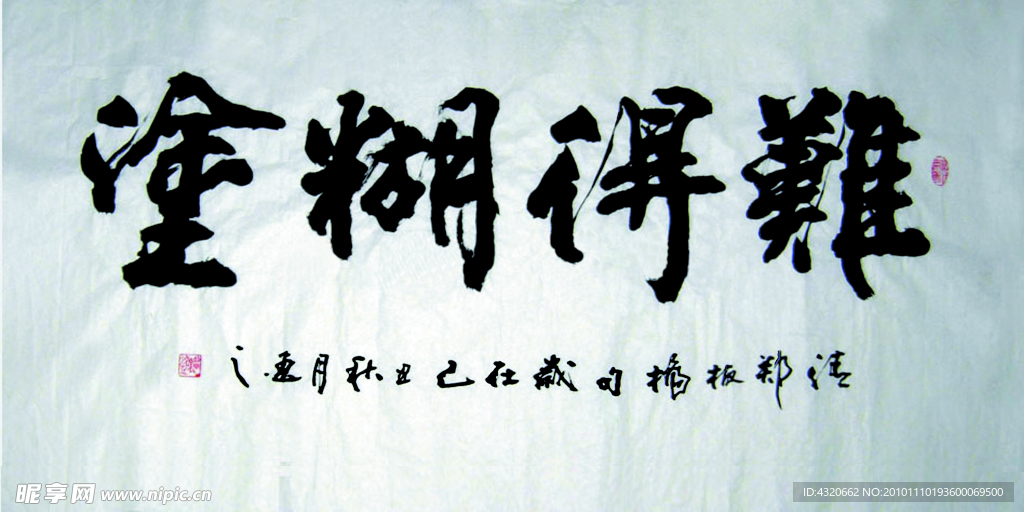 難得糊塗
清郑板橋句歲在己丑秋月
昵享网 www.nipic.cn
ID:4320662 NO:20101110193600069500